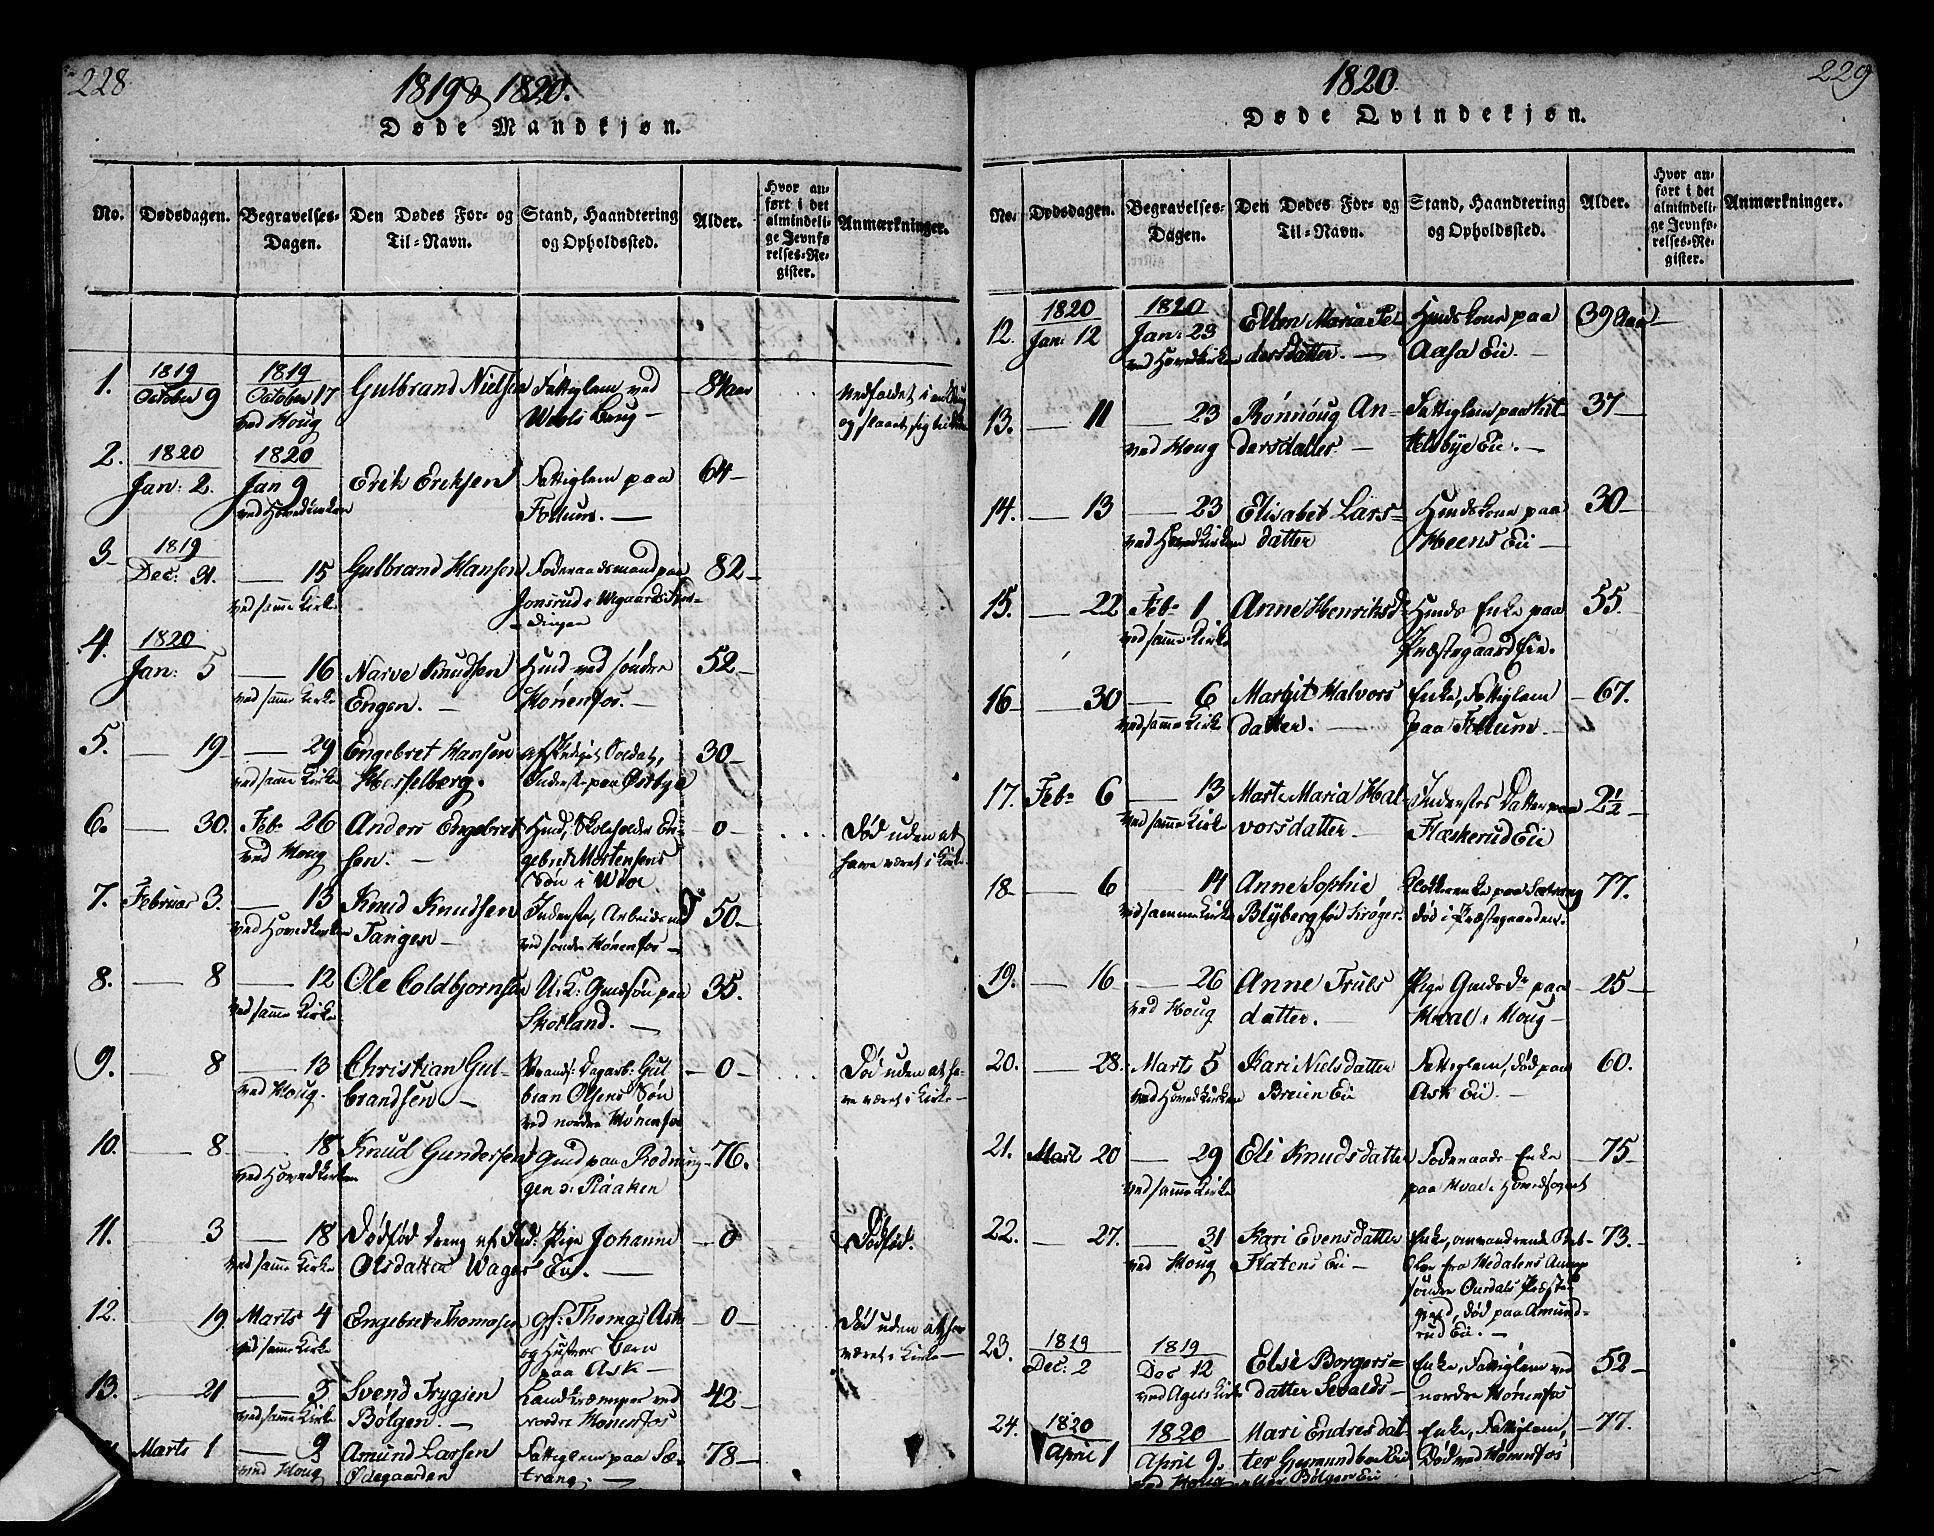 228
1819 & 1820.
Døde Mandkjøn.
No. Dødsdagen. Begravelses-Dagen. Den Dødes For- og Til-Navn. Stand, Haandtering og Opholdssted. Alder. Hvor anført i det almindelige Jevnførelses-Register. Anmærkninger.
1. 1819 October 9 1819 October 17 ved Houg Gulbrand Nielsen Fattiglem ved Brug 84 aar Nedfaldet i
og slaaet sig
2. 1820 Jan: 2. 1820 Jan 9 ved Hovedkirken Erik Eriksen Fattiglem paa Follum. 64
3. 1819 Dec: 31. 15 ved samme Kirke Gulbrand Hansen Foderaadsmand paa Jonsrud i 82
4. 1820 Jan: 5 16 ved samme Kirke Narve Knudsen Engen. Huusmand ved søndre Hønenfos. 52
5. 19 29 ved samme Kirke Engebret Hansen Hesselberg. afskediget Soldat, Inderst paa Østbye 30
6. 30. Feb. 26 ved Houg Anders Engebretsen. Huusmand, Skoleholder Engebret Mortensens Søn i 0 Død uden at
have været i Kirke
7. Februar 3. 13 ved Hovedkirken Knud Knudsen Tangen Inderste, Arbeidsmd ved søndre Hønenfos 50
8. 8 12 ved samme Kirke Ole Coldbjornsen U: K: Gmdsøn paa Skolland. 35.
9. 8 13 ved Houg. Christian Gulbrandsen Dagarb: Gulbran Olsens Søn ved nordre Hønenfos 0 Død uden at ha-
ve været i Kirke
10. 8 18 ved Hovedkirken Knud Gundersen Gmd paa Rødningen o: Plaaken 76.
11. 3 18 ved samme Kirke Dødfød Dreng af Ind: Pige Johanne Olsdatter Wager Eie. 0 Dødfød.
12. 19 Marts 4 ved samme Kirke Engebret Thomasen gf: Thomas Ask og Hustrues Barn paa Ask 0 Død uden at have
været i Kirke
13. 21 5 ved samme Kirke Svend Trygsen Bølgen. Landkræmmer ved nordre Hønenfos 42
Marts 1 9 ved Houg Amund Larsen Ødegaarden Fattiglem paa Sætrang. 78
1820.
229
Døde Qvindekjøn.
No. Dødsdagen. Begravelses-Dagen. Den Dødes For- og Til-Navn. Stand, Haandtering og Opholdssted. Alder. Hvor anført i det almindelige Jevnførelses-Register. Anmærkninger.
12. 1820 Jan: 12 1820 Jan: 23 ved Hovedkirken Ellen Maria Pedersdatter. Huuskone paa Aasa Eie. 39 Aar
13. 11 23 ved Houg Rønnoug Andersdatter. Fattiglem paa Kittelsbye Eie. 37
14. 13 23 ved Hovedkirken Elisabet Larsdatter Huuskone paa Heens Eie 30
15. 22 Feb. 1 ved samme Kirke Anne Henriksd. Huusmands Enke paa Præstegaard Eie. 55.
16 30 6 ved samme Kirke Margit Halvorsdatter. Enke, Fattiglem paa Follum. 67.
17. Feb. 6 13 ved samme Kirke Marte Maria Halvorsdatter Inderstes Datter paa Flaskerud Eie 2 1/2
18 6 14 ved samme Kirke Anne Sophie Blÿberg fød Krøger. Klokkerenke paa Sætrang død i Præstegaarden. 77.
19. 16 26 ved Houg Anne Trulsdatter. Pige Gmds Dr paa Hval i Houg 25
20. 28. Marts 5 ved Hovedkirken Kari Nielsdatter Breien Eie Fattiglem, død paa Ask Eie. 60.
21. Marts 20 29 ved samme Kirke Eli Knudsdatter Foderaads Enke paa Hval i Hovedsognet 75
22. 27. 31 ved Houg Kari Evensdatter Flatens Eie Enke, omvandrende Betler fra Hedalens Annex søndre Ourdals Præstegjeld, død paa Amundrud Eie. 73.
23. 1819 Dec. 2 1819 Dec 12 ved Kirke Else Borgersdatter Sevalds Enke, Fattiglem ved nordre Hønenfos 52
24. 1820 April 1 1820 April 9. ved Houg Mari Endresdatter Gusmundbek Eie eller Bølgen Eie Enke, Fattiglem, Død ved Hønenfos 77.